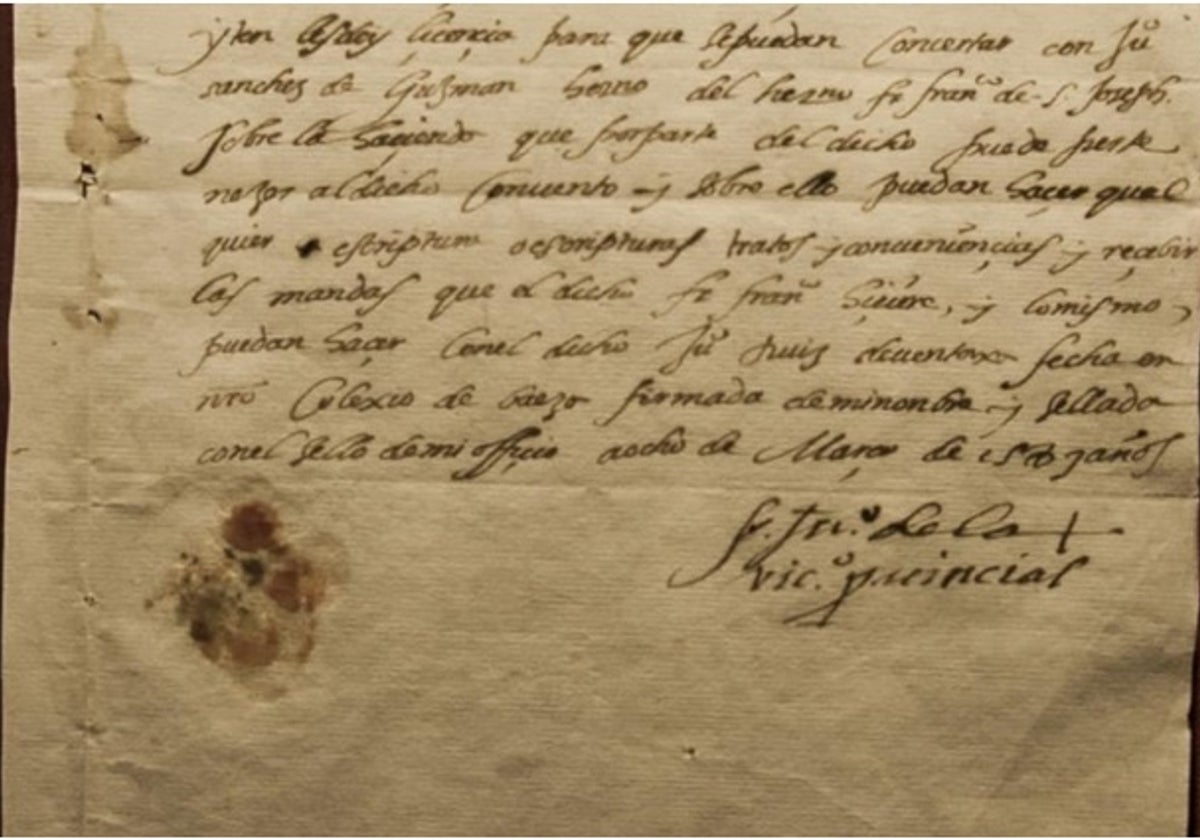 yten les doy licencia para que se puedan concertar con Juº
sanches de Guzman herno del herno fr franco de S. Joseph.
sobre la hacienda que por parte del dicho puede perte
nezer al dicho Convento y sobre ello puedan hacer qual
quier escriptura o escripturas tratos y convenencias y recebir
las mandas que el dicho fr franco hiciere, y lo mismo
puedan hacer con el dicho Juº Ruiz de ventaxa fecha en
nro Colexio de baeza firmada de mi nombre y sellada
con el sello de mi officio a ocho de Março de 1587 años
fr. Juº. de la +
vicº. provincial